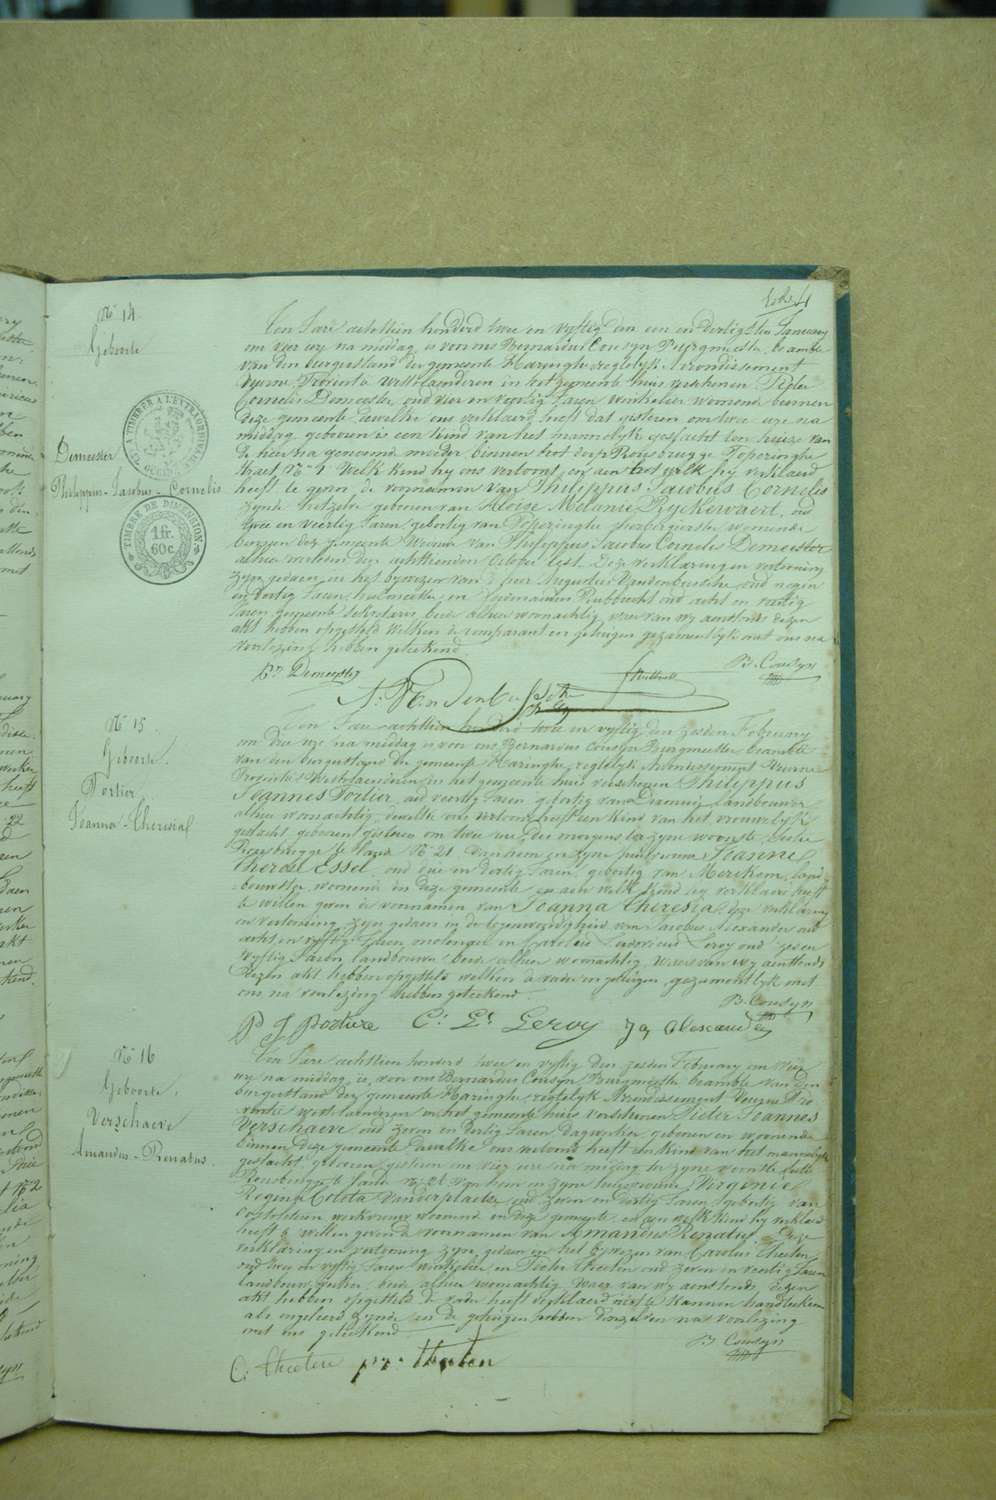 N° 14
Geboorte
Demeester
Philippus-Jacobus-Cornelis
A TIMBRER A L'EXTRAORDINAIRE
TIMBRE DE DIMENSION
1fr.
60c.
Ten Jare achttien honderd twee en vyftig den een en dertigsten January
om vier ure na middag is voor ons Bernardus Cousyn Burgmeester beambte
van den burgerstand der gemeente Haringhe regtelyk Arrondissement
Veurne Provintie Westvlaenderen in het gemeente huis verschenen Pieter
Cornelis Demeester, oud vier en veertig Jaren winkelier wonende binnen
deze gemeente dewelke ons verklaerd heeft dat gisteren om twee ure na
middag geboren is een kind van het mannelyk geslacht ten huize van
de hier na genoemde moeder binnen het dorp Rousbrugge Poperinghe
straet N° welk kind hy ons vertoont, en aen het welk hy verklaerd
heeft te geven de voornamen van Philippus Jacobus Cornelis
zynde hetzelve geboren van Aloise Melanie Ryckewaert, oud
twee en veertig Jaren, geboortig van Poperinghe herbergierster wonende
binnen deze gemeente Weduwe van Philippus Jacobus Cornelis Demeester
alhier overleden den achttienden October lest. Deze verklaring en vertooning
zyn gedaen in het bywezen van d'heer Augustus Vandenbussche oud negen
en dertig Jaren, en Ferdinandus Rubbrecht oud acht en veertig
Jaren gemeente sekretaris beide alhier woonachtig waer van wy aenstonds dezen
akt hebben opgesteld welken de comparant en getuigen gezamentlyk met ons na
voorlezing hebben geteekend
B. Cousyn
Pr Demeester
N° 15
Geboorte.
Portier
Joanna-Theresia
Ten Jare achttien honderd twee en vyftig den zesden February
om drie ure na middag is voor ons Bernardus Cousyn Burgmeester beambte
van den burgerstand der gemeente Haringhe, regtelyk Arrondissement Veurne
Provintie Westvlaenderen in het gemeente huis verschenen Philippus
Joannes Portier, oud veertig Jaren geboortig van Landbouwer
alhier woonachtig, dewelke ons vertoont heeft een kind van het vrouwelyk
geslacht geboren gisteren om twee ure des morgens ter zyne woonste, sectie
Rousbrugge N° 21 van hem en zyne huisvrouw Joanne
Therese Essel, oud drie en dertig Jaren, geboortig van Merckem, land-
bouwster wonende in deze gemeente en aen welk kind hy verklaerd heeft
te willen geven de voornamen van Joanna Theresia, deze verklaring
en vertooning zyn gedaen in de tegenwoordigheid van Jacobus Alexander oud
acht en vyftig Jaren, en Carolus Ludovicus Leroy oud zes en
vyftig Jaren landbouwer beide alhier woonachtig, Waer van wy aenstonds
dezen akt hebben opgesteld welken de vader en getuigen gezamentlyk met
ons na voorlezing hebben geteekend
B. Cousyn
P J Portier C. Ls Leroy
N° 16
Geboorte,
Verschaeve
Amandus-Renatus.
Ten Jare achttien honderd twee en vyftig den zesden February om vier
ure na middag, is voor ons Bernardus Cousyn Burgmeester beambte van den
burgerstand der gemeente Haringhe regtelyk Arrondissement Veurne Pro-
vintie Westvlaenderen in het gemeente huis verschenen Pieter Joannes
Verschaeve oud zeven en dertig Jaren dagwerker geboren en wonende
binnen deze gemeente dewelke ons vertoond heeft een kind van het mannelyk
geslacht geboren gisteren om vier ure na middag ter zyne woonste sectie
Rousbrugge van hem en zyne huisvrouw Virginie
Regina Coleta Vanderplaetse oud zeven en dertig Jaren geboortig van
werkvrouw wonende in deze gemeente en aen welk kind hy verklaerd
heeft te willen geven de voornamen van Amandus Renatus. Deze
verklaring en vertooning zyn gedaen in het bywezen van Carolus Theeten
oud twee en vyftig Jaren winkelier en Pieter Theeten oud zeven en veertig Jaren
landbouwer beide alhier woonachtig, Waer van wy aenstonds dezen
akt hebben opgesteld de vader heeft verklaerd niet te kunnen handteeken
als ongeleerd zynde en de getuigen hebben dezelven na voorlezing
met ons geteekend
B. Cousyn
C. Theeten pr: theeten